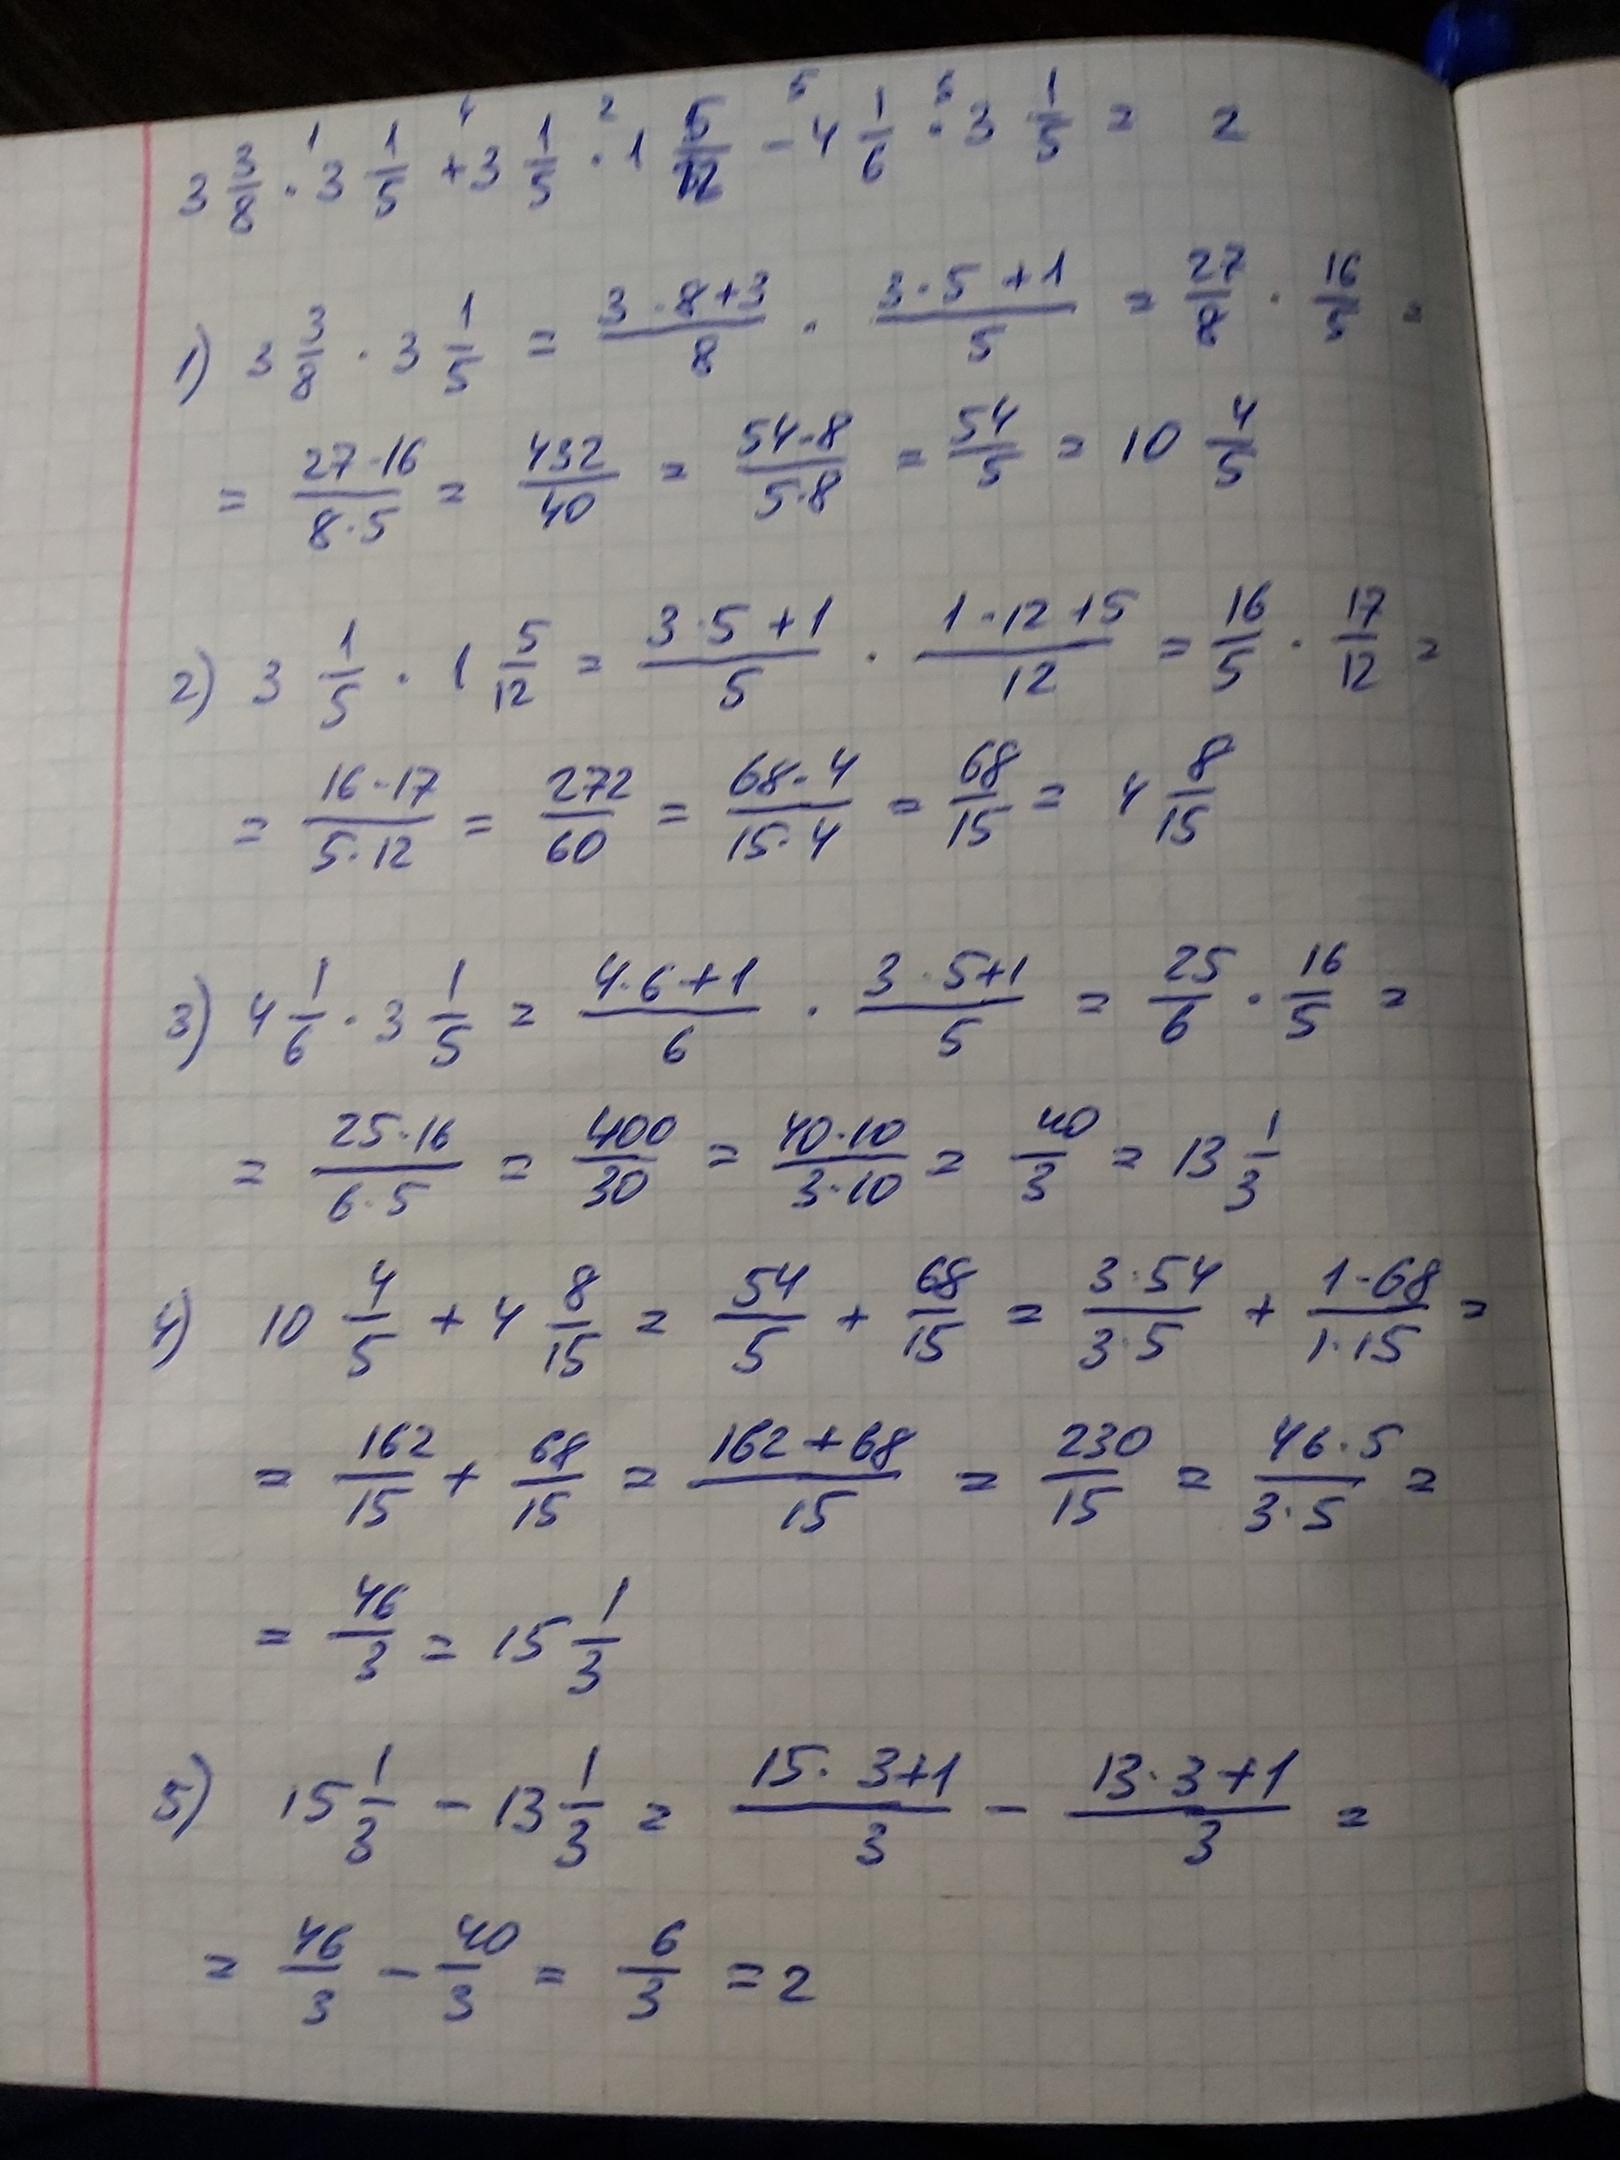 3 3/8 · 3 1/5 + 3 1/5 · 1 5/12 - 4 1/6 · 3 1/5 = 2
1) 3 3/8 · 3 1/5 = (3·8+3)/8 · (3·5+1)/5 = 27/8 · 16/5 =
= (27·16)/(8·5) = 432/40 = (54·8)/(5·8) = 54/5 = 10 4/5
2) 3 1/5 · 1 5/12 = (3·5+1)/5 · (1·12+5)/12 = 16/5 · 17/12 =
= (16·17)/(5·12) = 272/60 = (68·4)/(15·4) = 68/15 = 4 8/15
3) 4 1/6 · 3 1/5 = (4·6+1)/6 · (3·5+1)/5 = 25/6 · 16/5 =
= (25·16)/(6·5) = 400/30 = (40·10)/(3·10) = 40/3 = 13 1/3
4) 10 4/5 + 4 8/15 = 54/5 + 68/15 = (3·54)/(3·5) + (1·68)/(1·15) =
= 162/15 + 68/15 = (162+68)/15 = 230/15 = (46·5)/(3·5) =
= 46/3 = 15 1/3
5) 15 1/3 - 13 1/3 = (15·3+1)/3 - (13·3+1)/3 =
= 46/3 - 40/3 = 6/3 = 2